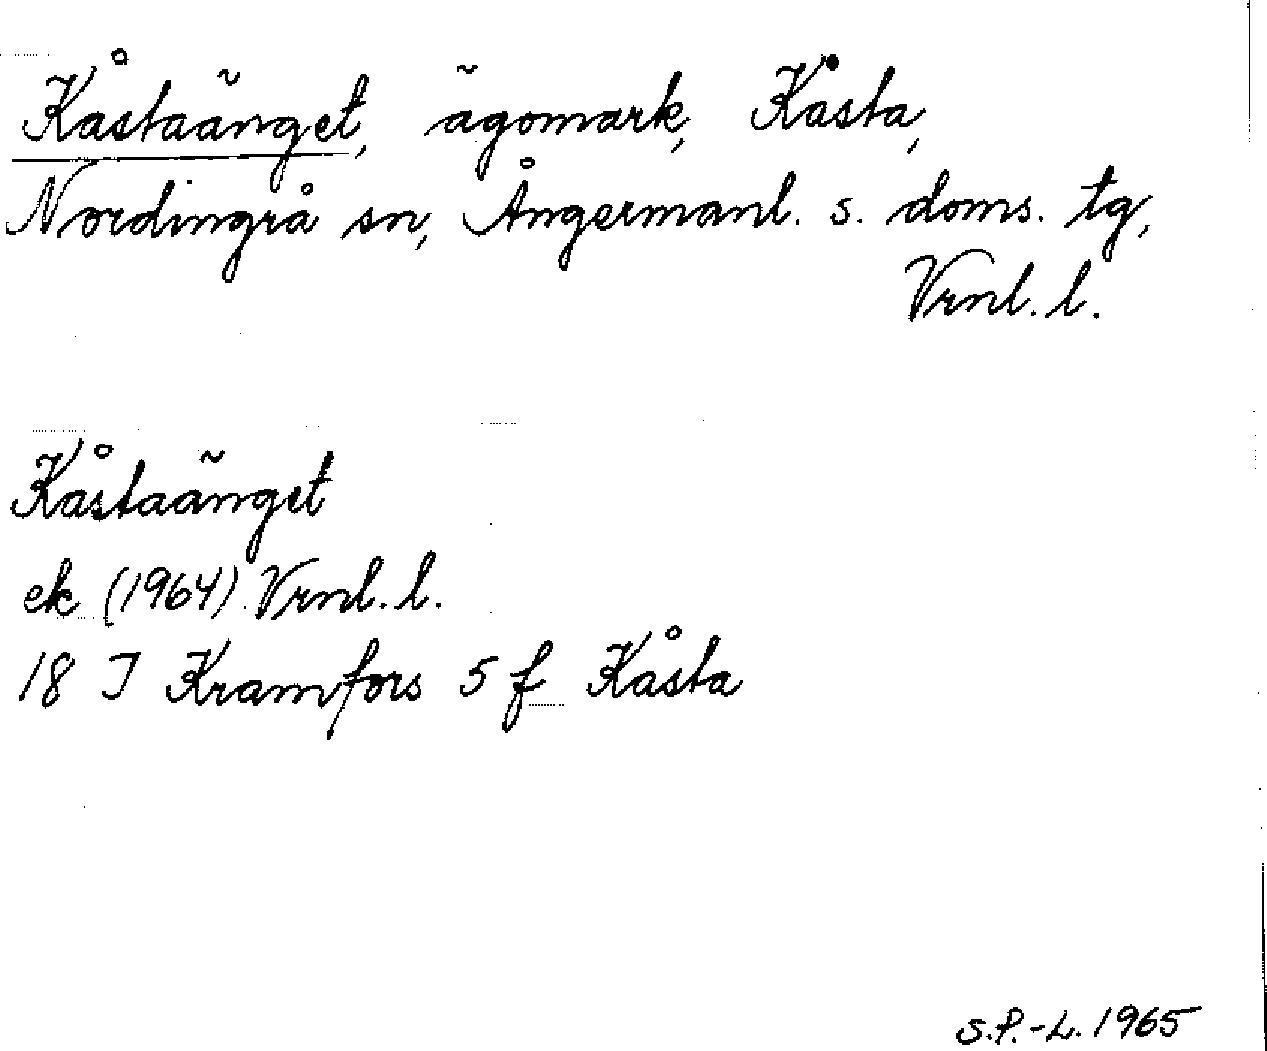 Kåstaänget, ägomark, Kåsta,
Nordingrå sn, Ångermanl. s. doms. tg,
Vrnl. l.
Kåstaänget
ek (1964) Vrnl. l.
18 I Kramfors 5 f Kåsta
S.P.-L. 1965